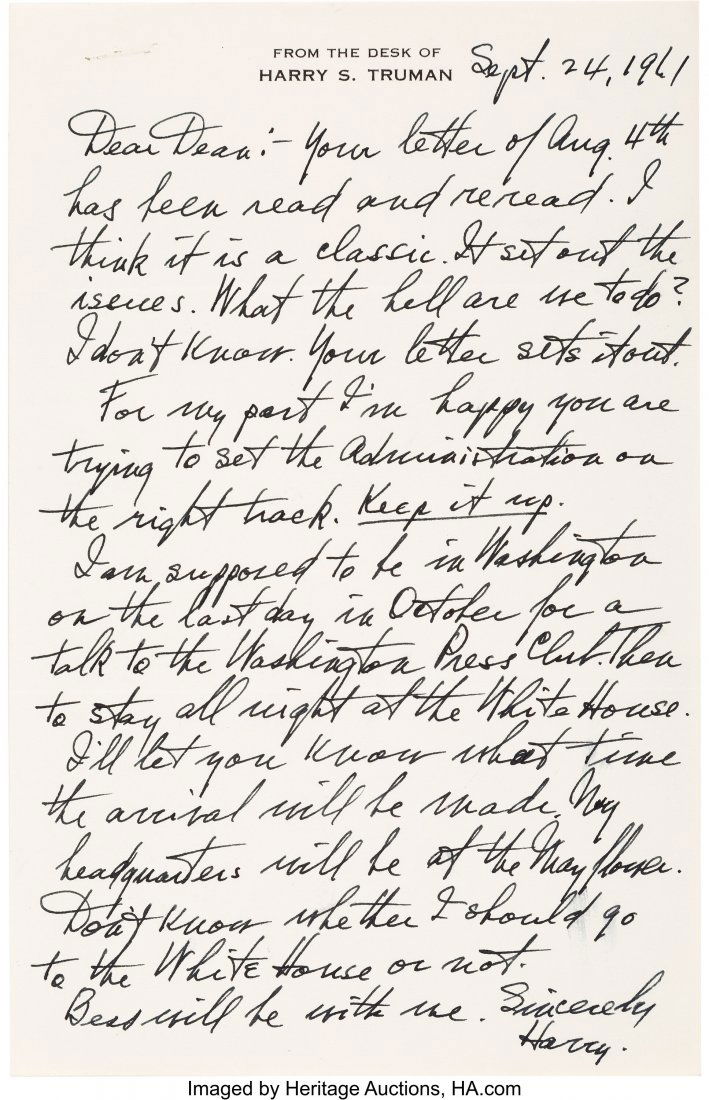 FROM THE DESK OF
HARRY S. TRUMAN
Sept. 24, 1961
Dear Dean:- Your letter of Aug. 4th
has been read and reread. I
think it is a classic. It set out the
issues. What the hell are we to do?
I don't know. Your letter sets it out.
For my part I'm happy you are
trying to set the Administration on
the right track. Keep it up.
I am supposed to be in Washington
on the last day in October for a
talk to the Washington Press Club. Then
to stay all night at the White House.
I'll let you know what time
the arrival will be made. My
headquarters will be at the Mayflower.
Don't know whether I should go
to the White House or not.
Bess will be with me. Sincerely
Harry.
Imaged by Heritage Auctions, HA.com